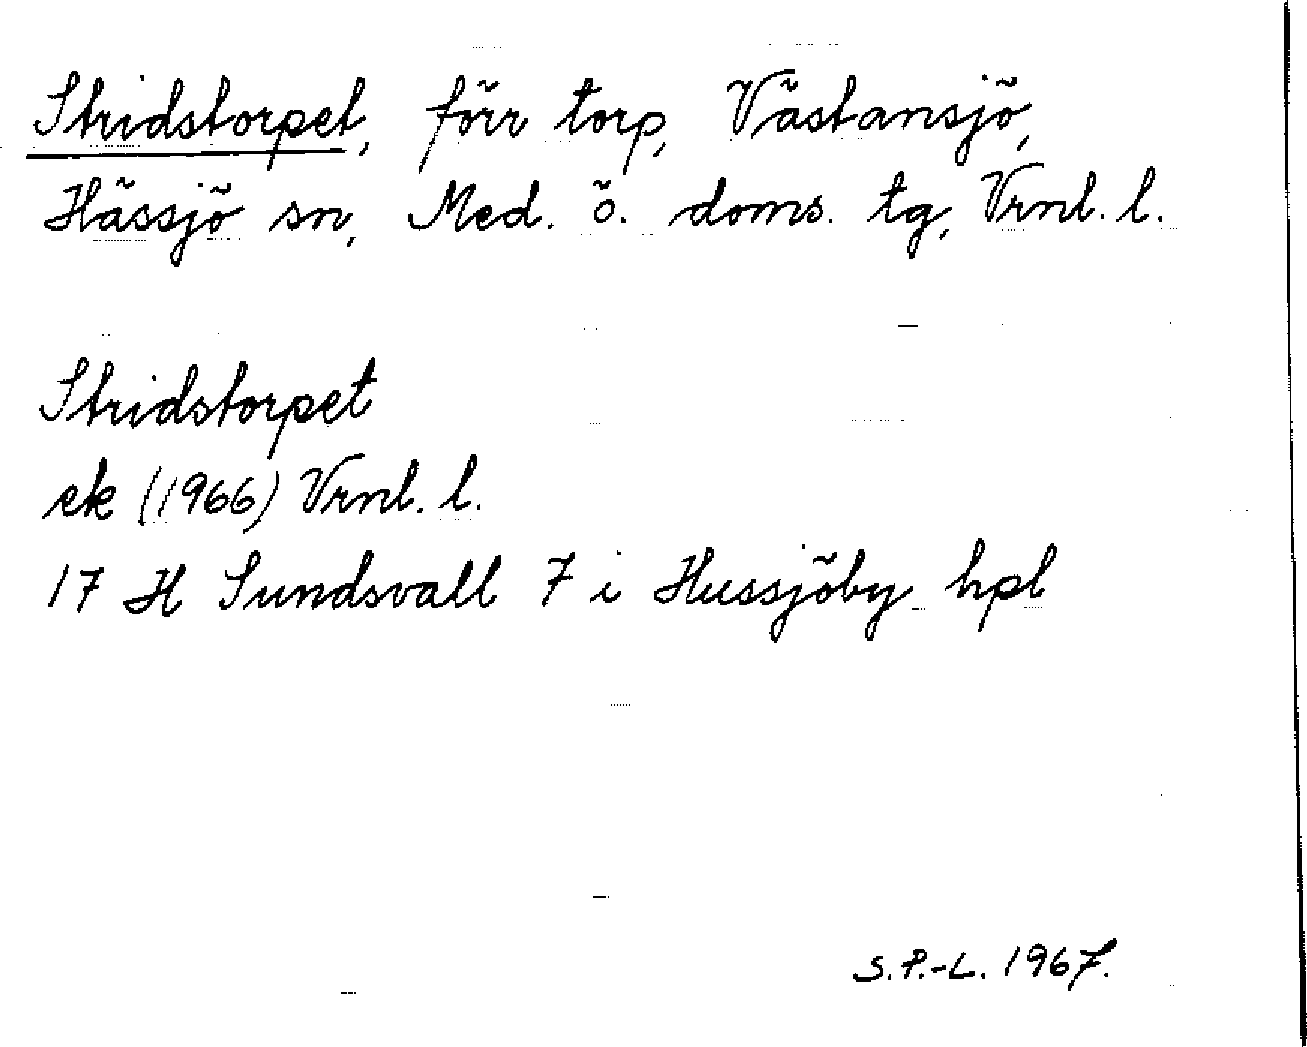 Stridstorpet, förr torp, Västansjö,
Hässjö sn, Med. ö. doms. tg, Vrnl. l.
Stridstorpet
ek (1966) Vrnl. l.
17 H Sundsvall 7 i Hussjöby hpl
S.P.-L. 1967.